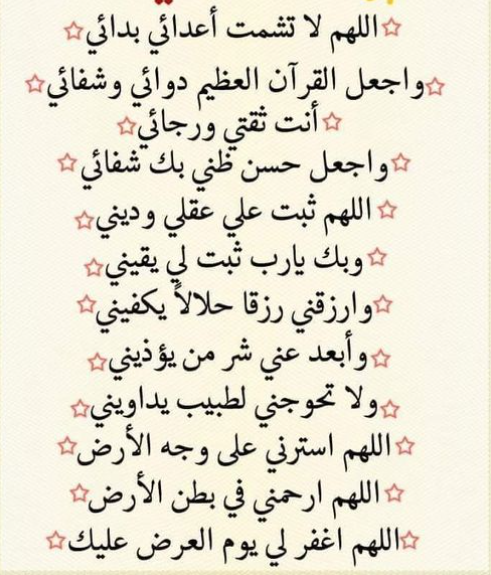 اللهم لا تشمت أعدائي بدائي
واجعل القرآن العظيم دوائي وشفائي
أنت ثقتي ورجائي
واجعل حسن ظني بك شفائي
اللهم ثبت علي عقلي وديني
وبك يارب ثبت لي يقيني
وارزقني رزقا حلالاً يكفيني
وأبعد عني شر من يؤذيني
ولا تحوجني لطبيب يداويني
اللهم استرني على وجه الأرض
اللهم ارحمني في بطن الأرض
اللهم اغفر لي يوم العرض عليك